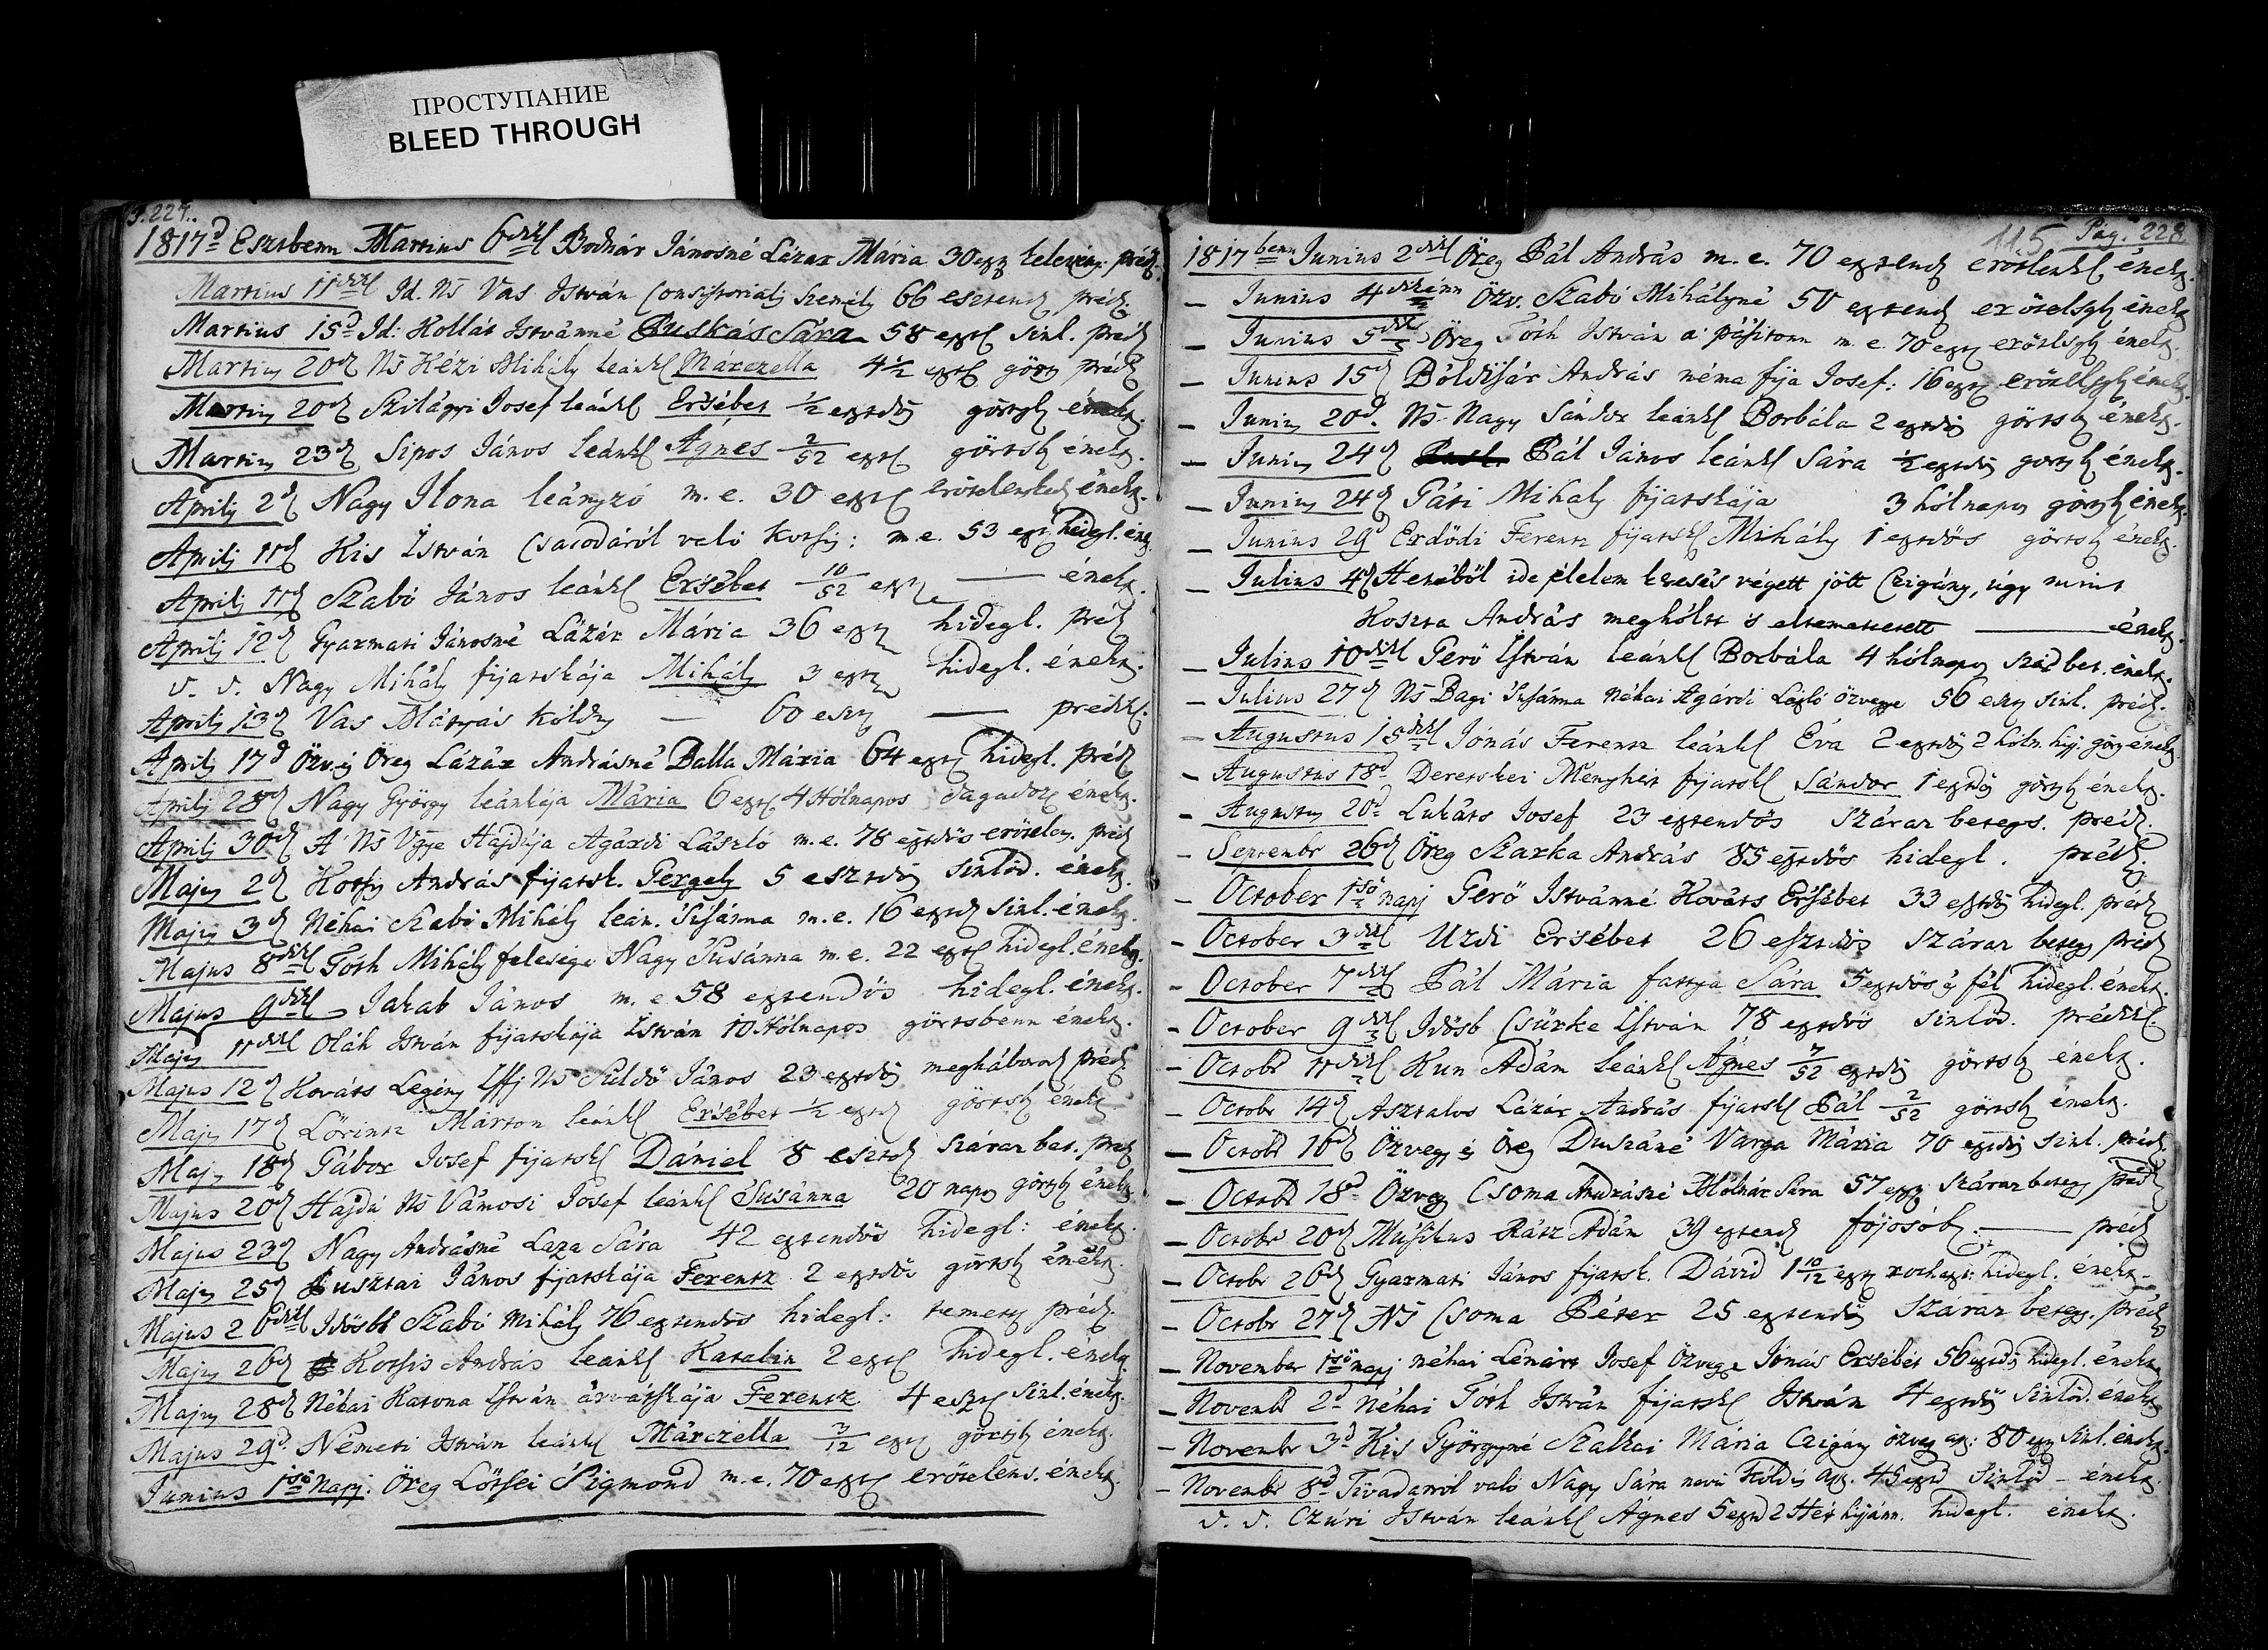 ПРОСТУПАНИЕ
BLEED THROUGH
1817d Esztbenn Martius 6dikl Bodnár Jánosné Lázár Mária 30 préd.
Martius 11dikl Id. Ns Vas István Consistorialis Személy 66 esztend préd.
Martius 15d Id: Kollát Istvánné Puskás Sára 58 eszt sinl. préd
Martius 20d Ns Kézi Mihály leánkl Márczella 4 1/2 eszt görts préd
Martius 20d Szilágyi Josef leánkl Ersébet 1/2 esztdős görtsb énekz.
Martius 23d Sipos János leánkl Ágnes 2/52 eszt görtsb énekz.
Aprilis 2d Nagy Ilona leányzó m.e. 30 eszt énekz.
Aprilis 11d Kis István Csarodáról való Kotsis: m.e. 53 esz hidegl. én.
Aprilis 11d Szabó János leánkl Ersébet 10/52 esz — énekz.
Aprilis 12d Gyarmati Jánosné Lázár Mária 36 esz hidegl. préd
v. v. Nagy Mihály fijatskája Mihály 3 eszt hidegl. énekz.
Aprilis 13d Vas Mátyás — 60 esz — prédkl.
Aprilis 17d Özv. és Öreg Lázár Andrásné Balla Mária 64 eszt hidegl. préd
Aprilis 28d Nagy György leánkája Mária 6 eszt 4 Hólnapos dagadoz énekz.
Aprilis 30d A' Ns Vgye Hajdúja Agárdi László m.e. 78 esztdős erőtelen. préd
Majus 2d Kotsis András fijatsk. Gergely 5 esztdős sinlőd. énekz.
Majus 3d Néhai Szabó Mihály leán. Susánna m.e. 16 eszt sinl. énekz.
Majus 8dikl Tóth Mihály felesége Nagy Susánna m.e. 22 eszt hidegl. énekz.
Majus 9dikl Jakab János m.e. 58 esztendős hidegl. énekz.
Majus 11dikl Oláh István fijatskája István 10 Hólnapos görtsbenn énekz.
Majus 12d Kováts Legény Ifj Ns Süldő János 23 esztdős megháborod préd.
Maj 17d Lőrintz Márton leánkl Ersébet 1/2 eszt görtsb énekz
Maj 18d Gábor Josef fijatskl Dániel 8 esztd száraz bet. préd
Majus 20d Hajdú Ns Vámosi Josef leánkl Susánna 20 napos görtsb énekz
Majus 23d Nagy Andrásné Laza Sára 42 esztendős hidegl: énekz.
Majus 25d Pusztai János fijatskája Ferentz 2 esztdős görtsb énekz.
Majus 26dikl Idősb Szabó Mihály 76 esztendős hidegl: temets préd.
Majus 26d Kotsis András leánkl Katalin 2 eszt hidegl. énekz.
Majus 28d Néhai Katona István árvátskája Ferentz 4 eszt sinl. énekz.
Majus 29d Németi István leánkl Márczella 3/12 esz görtsb énekz.
Junius 1ső napj. Öreg Lőtsei Sigmond m.e. 70 eszt erőtelens. énekz.
115 Pag. 228
1817benn Junius 2dikl Öreg Pál András m.e. 70 esztend erőtlenkl énekz.
— Junius 4dikénn Özv. Szabó Mihályné 50 esztend énekz
— Junius 5dikl Öreg Tóth István a' m.e. 70 eszt énekz.
— Junius 15d Bóldisár András néma fija Josef: 16 eszt énekz.
— Junius 20d. Ns Nagy Sándor leánkl Borbála 2 esztdős görtsb énekz.
— Junius 24d Pál János leánkl Sára 1/2 esztdős görtsb énekz.
— Junius 24d Gáti Mihály fijatskája 3 hólnapos görtsb énekz.
— Junius 29d Erdődi Ferentz fijatskl Mihály 1 esztdős görtsb énekz.
— Julius 4d ide élelem keresés végett jött Czigány, úgy mint
Koszta András meghólt és eltemettetett — énekz.
— Julius 10dikl Gerő István leánkl Borbála 4 hólnapos száraz bet. énekz.
— Julius 27d Ns Bagi Susánna néhai Agárdi László özvegye 56 esz sinl. préd.
— Augustus 15dikl Jónás Ferentz leánkl Éva 2 esztdős 2 hóln. híj. görts énekz
— Augustus 18d Deretskei Menyhért fijatskl Sándor 1 esztdős görtsb énekz.
— Augustus 20d Lukáts Josef 23 esztendős száraz betegs. préd.
— Septembr 26d Öreg Szarka András 85 esztdős hidegl. préd.
— October 1ső napj Gerő Istvánné Kováts Ersébet 33 esztdős hidegl. préd
— October 3dikl Uzdi Ersébet 26 esztdős száraz betegs préd
— October 7dikl Pál Mária fattya Sára 5 esztdős és fél hidegl. énekz.
— October 9dikl Idősb Csürke István 78 esztdős sinlőd. prédkl.
— Octobr 11dikl Kun Ádám leánkl Ágnes 7/52 esztdős görtsb énekz.
— Octobr 14d Asztalos Lázár András fijatskl Pál 2/52 görtsb énekz.
— Octobr 16d Özvegy és Öreg Duszáné Varga Mária 70 esztdős sinl. préd.
— Octobr 18d Özvegy Csoma Andrásné Mólnár Sára 57 esz száraz betegs préd
— Octobr 20d Musikus Rátz Ádám 39 esztend — préd
— Octobr 26d Gyarmati János fijatsk. Dávid 1 10/12 esz hidegl. énekz.
— Octobr 27d Ns Csoma Péter 25 esztendős száraz betegs. préd
— November 1ső napj néhai Lénárt Josef özvegye Jónás Ersébet 56 esztdős hidegl. énekz
— Novembr 2d néhai Tóth István fijatskl István 4 esztdős sinlőd. énekz
— Novembr 3d Kis Györgyné Szallai Mária Czigány özvegy asz: 80 esz sinl. énekz.
— Novembr 8d Tivadarról való Nagy Sára nevű asz. 45 esztd sinlőd — énekz.
v. v. Czúri István leánkl Ágnes 5 esztd 2 Hét híjánn. hidegl. énekz.